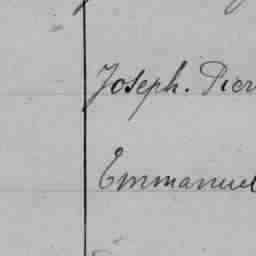 Joseph. Pier
Emmanuel